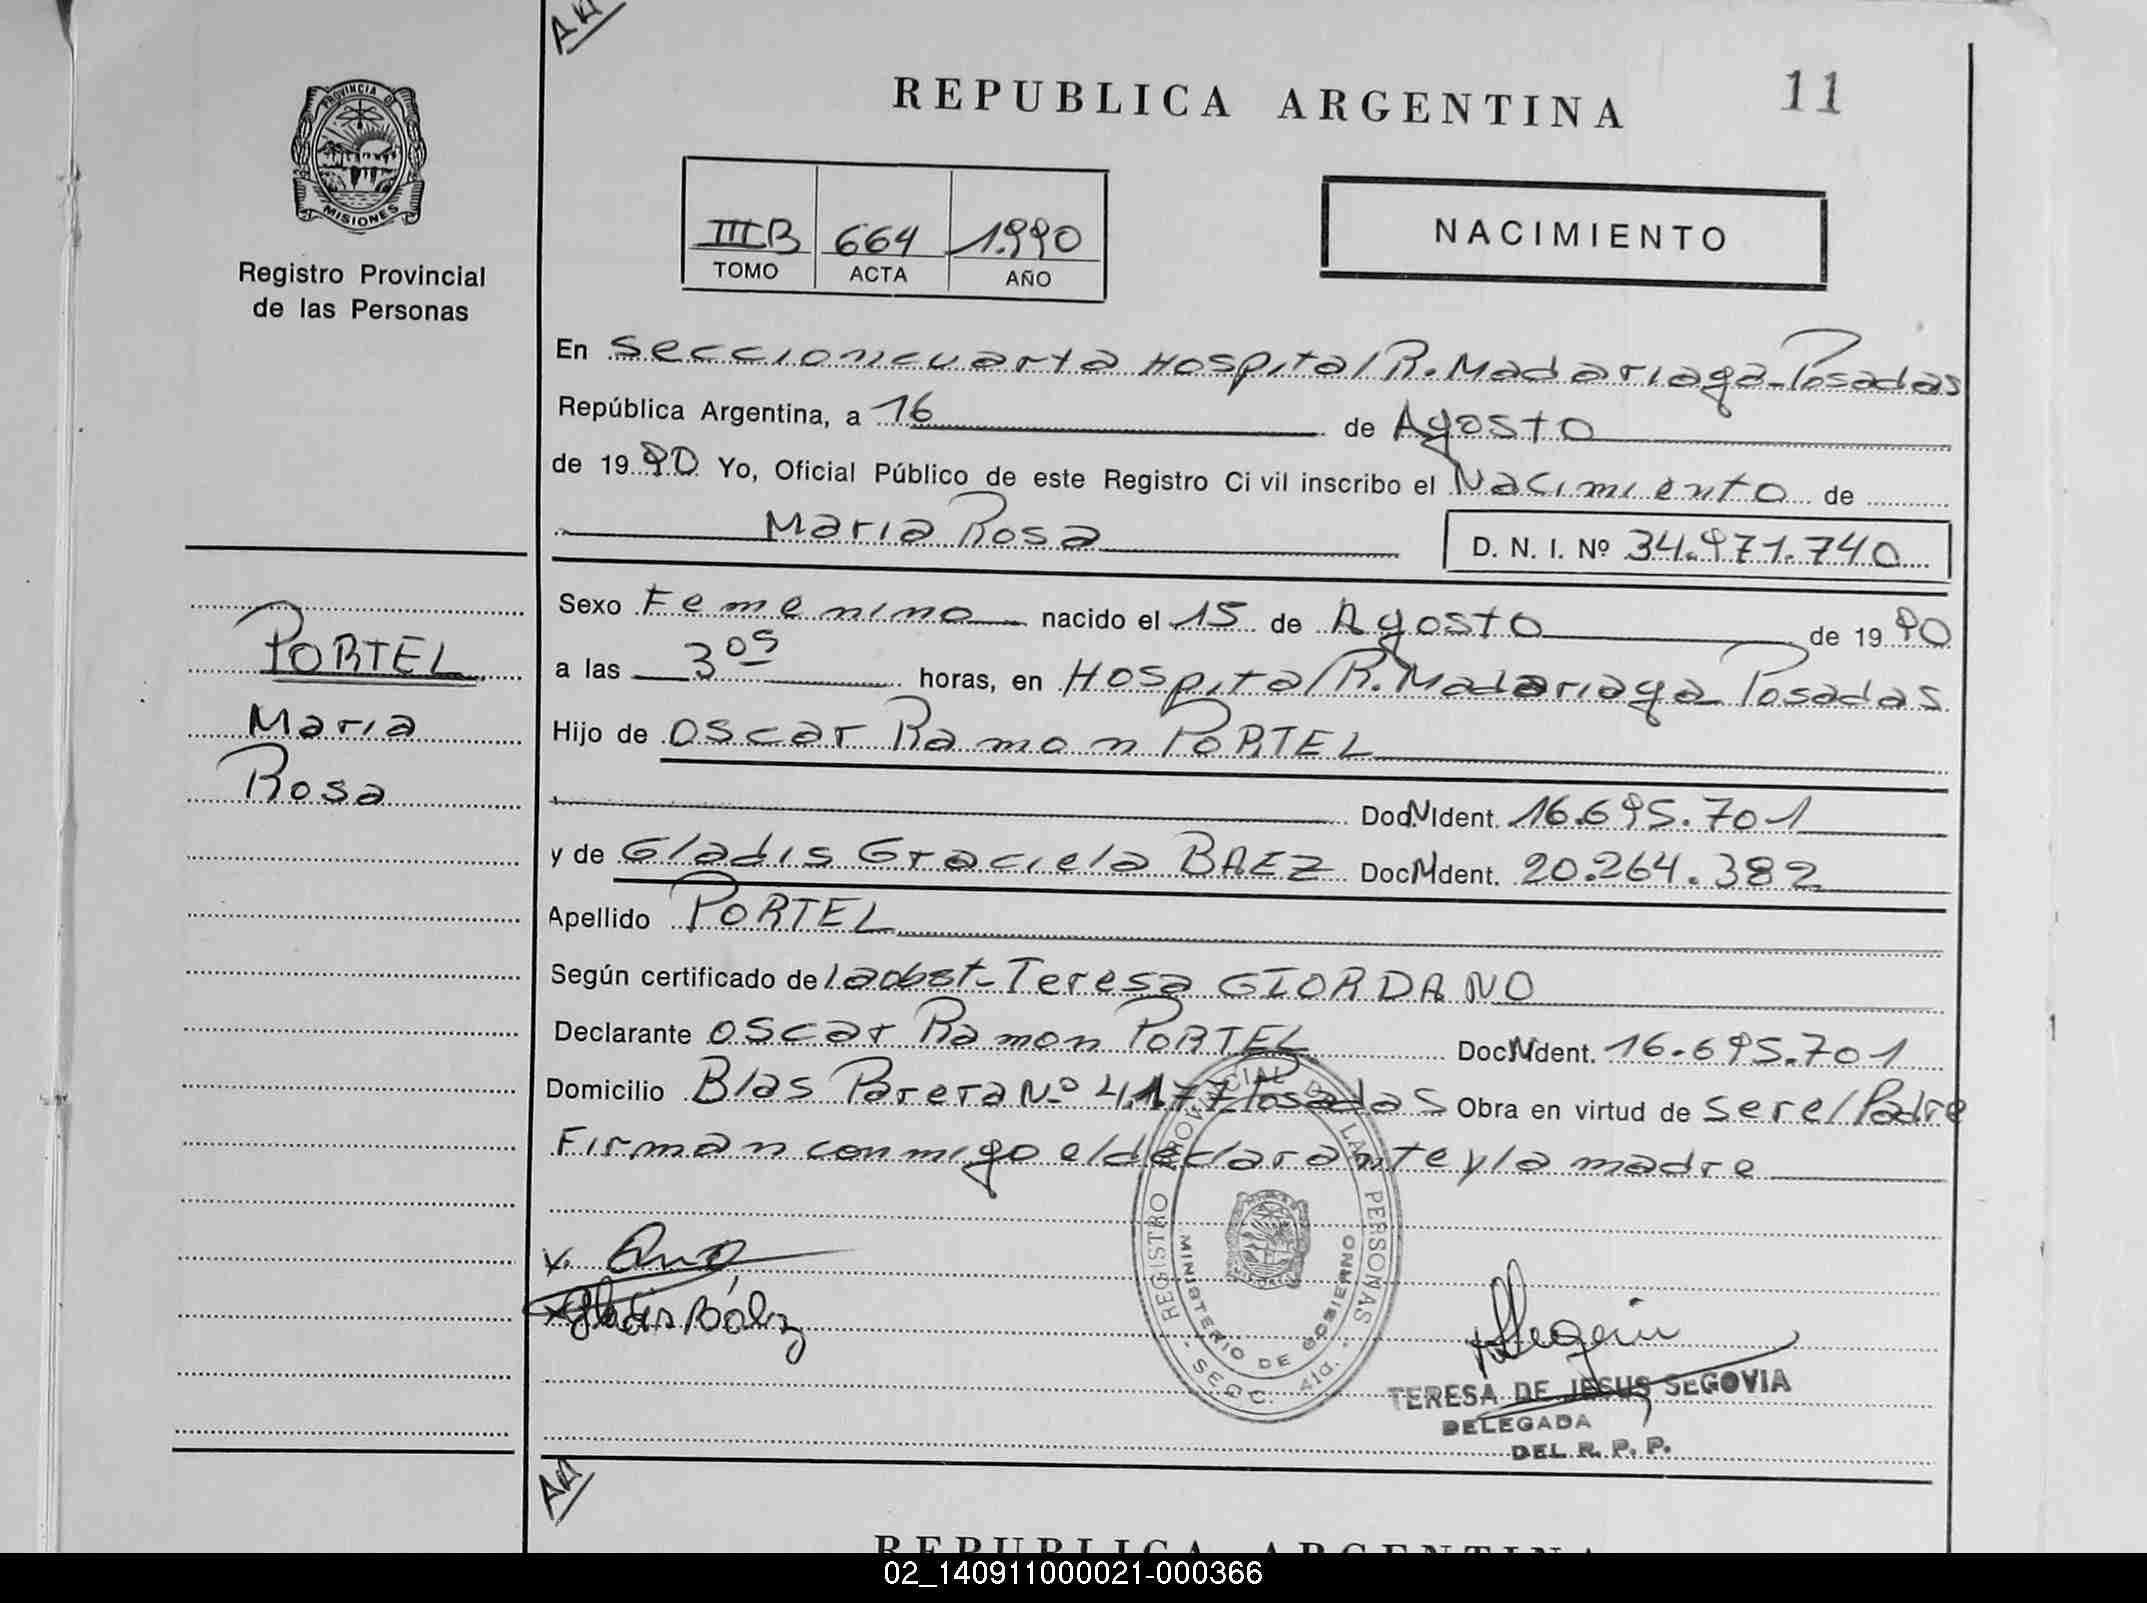 REPUBLICA ARGENTINA
11
PROVINCIA DE
MISIONES
Registro Provincial
de las Personas
IIIB 664 1.990
TOMO ACTA AÑO
NACIMIENTO
En Seccion cuarta Hospital R. Madariaga - Posadas
República Argentina, a 16 de Agosto
de 1990 Yo, Oficial Público de este Registro Civil inscribo el Nacimiento de
Maria Rosa D. N. I. Nº 34.971.740
Sexo Femenino nacido el 15 de Agosto de 1990
a las 3 05 horas, en Hospital R. Madariaga Posadas
Hijo de Oscar Ramon PORTEL
Doc.N.Ident. 16.695.701
y de Gladis Graciela BAEZ Doc.N.Ident. 20.264.382
Apellido PORTEL
Según certificado de la obst- Teresa GIORDANO
Declarante Oscar Ramon PORTEL Doc.N.Ident. 16.695.701
Domicilio Blas Parera Nº 4.177 Posadas Obra en virtud de ser el Padre
Firman conmigo el declarante y la madre
PORTEL
Maria
Rosa
x.
x Gladis Báez
REGISTRO PROVINCIAL DE LAS PERSONAS
MINISTERIO DE GOBIERNO
SECC. 4ta.
TERESA DE JESUS SEGOVIA
DELEGADA
DEL R. P. P.
REPUBLICA ARGENTINA
02_140911000021-000366